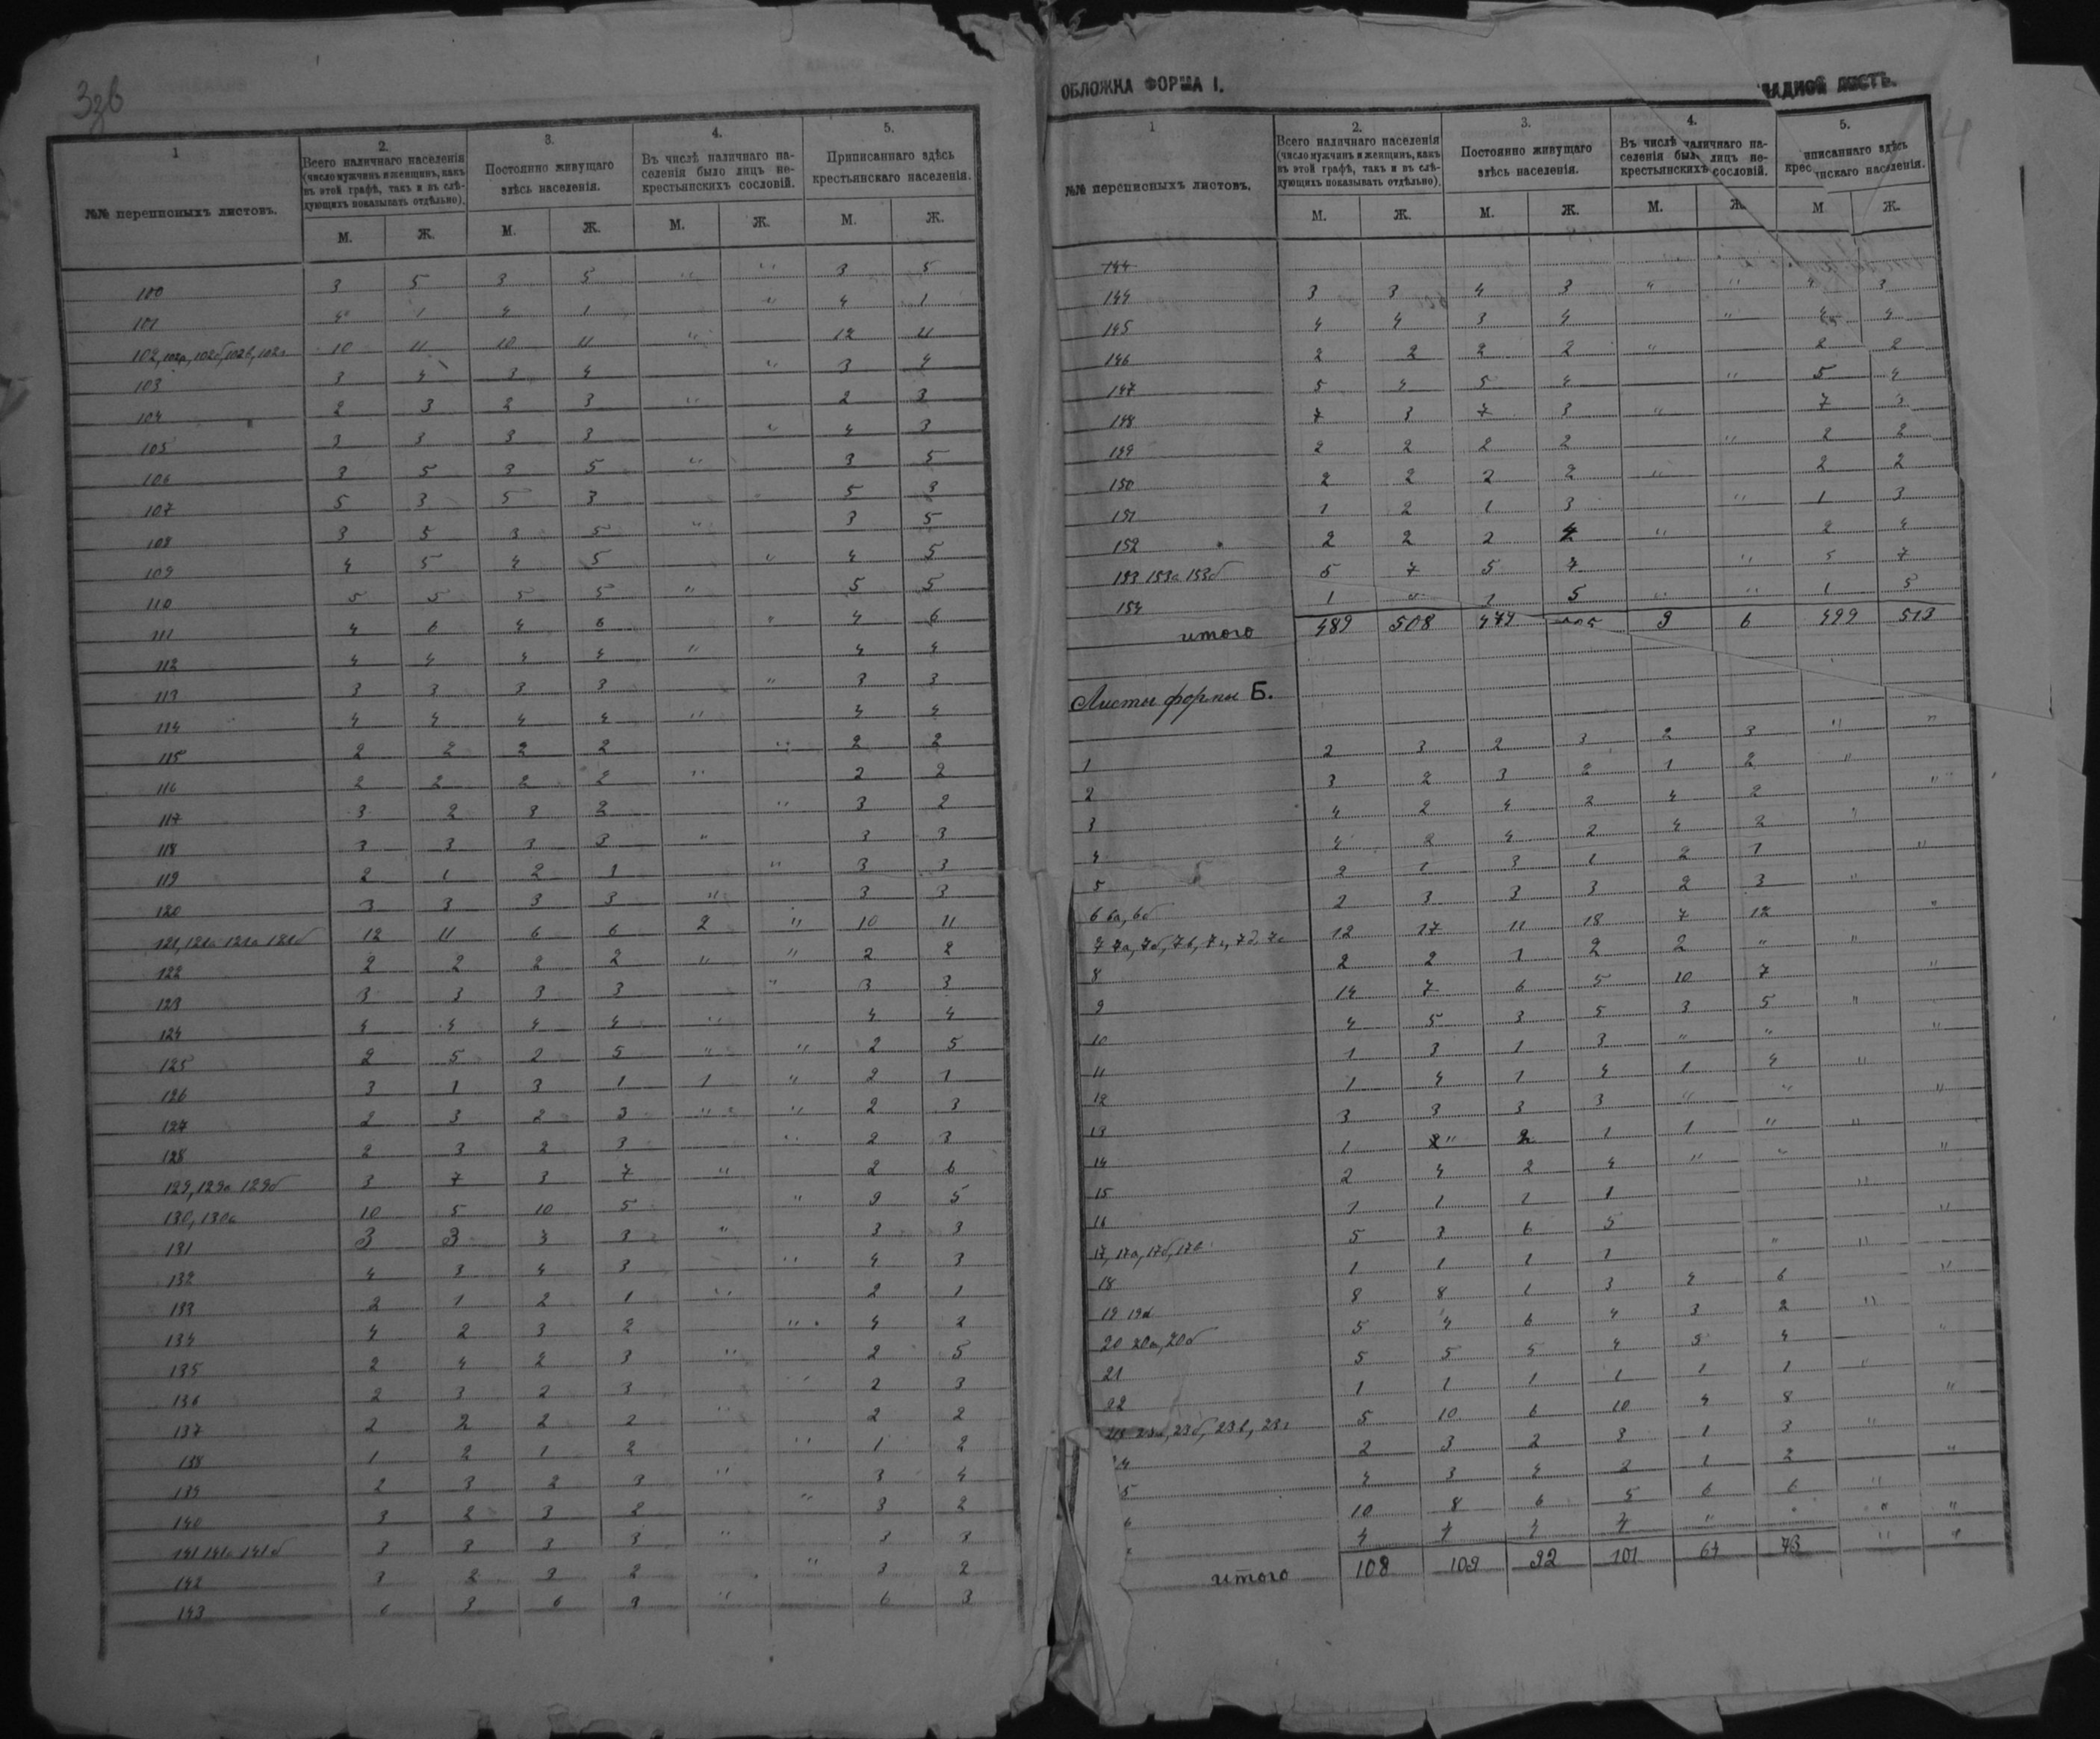 3зв
1
2.
3.
4.
5.
№№ переписныхъ листовъ.
Всего наличнаго населенія (число мужчинъ и женщинъ, какъ въ этой графѣ, такъ и въ слѣдующихъ показывать отдѣльно).
Постоянно живущаго здѣсь населенія.
Въ числѣ наличнаго населенія было лицъ некрестьянскихъ сословій.
Приписаннаго здѣсь крестьянскаго населенія.
М. Ж. М. Ж. М. Ж. М. Ж.
100 3 5 3 5 " " 3 5
101 4 1 4 1 " 4 1
102, 102а, 102б, 102в, 102г 10 11 10 11 " 12 11
103 3 4 3 4 " 3 4
104 2 3 2 3 " 2 3
105 3 3 3 3 " 4 3
106 3 5 3 5 " 3 5
107 5 3 5 3 " 5 3
108 3 5 3 5 " 3 5
109 4 5 4 5 " 4 5
110 5 5 5 5 " 5 5
111 4 6 4 6 " 4 6
112 4 4 4 4 " 4 4
113 3 3 3 3 " 3 3
114 4 4 4 4 " 4 4
115 2 2 2 2 " 2 2
116 2 2 2 2 " 2 2
117 3 2 3 2 " 3 2
118 3 3 3 3 " 3 3
119 2 1 2 1 " 3 3
120 3 3 3 3 " 3 3
121, 121а 121а 121б 12 11 6 6 2 " 10 11
122 2 2 2 2 " " 2 2
123 3 3 3 3 " 3 3
124 4 4 4 4 " 4 4
125 2 5 2 5 " " 2 5
126 3 1 3 1 1 " 2 1
127 2 3 2 3 " " 2 3
128 2 3 2 3 " 2 3
129, 129а 129б 3 7 3 7 " 2 6
130, 130а 10 5 10 5 " 9 5
131 3 3 3 3 " 3 3
132 4 3 4 3 " 4 3
133 2 1 2 1 " 2 1
134 4 2 3 2 " 4 2
135 2 4 2 3 " 2 5
136 2 3 2 3 " 2 3
137 2 2 2 2 " 2 2
138 1 2 1 2 " 1 2
139 2 3 2 3 " 3 4
140 3 2 3 2 " 3 2
141 141а 141б 3 3 3 3 " 3 3
142 3 2 3 2 " 3 2
143 6 3 6 3 " 6 3
ОБЛОЖКА ФОРМА I.
ЛАДНОЙ ЛИСТЪ.
4
1
2.
3.
4.
5.
№№ переписныхъ листовъ.
Всего наличнаго населенія (число мужчинъ и женщинъ, какъ въ этой графѣ, такъ и въ слѣдующихъ показывать отдѣльно).
Постоянно живущаго здѣсь населенія.
Въ числѣ наличнаго населенія было лицъ некрестьянскихъ сословій.
иписаннаго здѣсь крес нскаго населенія.
М. Ж. М. Ж. М. Ж. М Ж.
144
144 3 3 4 3 " " 4 3
145 4 4 3 4 " 4 4
146 2 2 2 2 " 2 2
147 5 4 5 4 " 5 4
148 7 3 7 3 " 7 3
149 2 2 2 2 " 2 2
150 2 2 2 2 " 2 2
151 1 2 1 3 " 1 3
152 2 2 2 4 " 2 4
153 153а 153б 5 7 5 7 " 5 7
154 1 " 1 5 " " 1 5
итого 489 508 479 9 6 499 513
Листы формы Б.
1 2 3 2 3 2 3 " "
2 3 2 3 2 1 2 "
3 4 2 4 2 4 2 "
4 4 2 4 2 4 2 "
5 2 1 3 1 2 1 "
6 6а, 6б 2 3 3 3 2 3 "
7 7а, 7б, 7в, 7г, 7д, 7е 12 17 11 18 7 12 "
8 2 2 1 2 2 " "
9 14 7 6 5 10 7 "
10 4 5 3 5 3 5 "
11 1 3 1 3 " " "
12 1 4 1 4 1 4 "
13 3 3 3 3 " " "
14 1 " 2 1 1 " "
15 2 4 2 4 " " "
16 1 1 1 1 "
17, 17а, 17б, 17в 5 3 6 5 "
18 1 1 1 1 " "
19 19а 8 8 1 3 4 6 "
20 20а, 20б 5 4 6 4 3 2 "
21 5 5 5 4 3 4 "
22 1 1 1 1 1 1 "
23 23а, 23б, 23в, 23г 5 10 6 10 4 8 "
4 2 3 2 3 1 3 "
5 4 3 4 2 1 2 "
6 10 8 6 5 6 6 "
4 4 4 4 " " " "
итого 108 109 92 101 64 73 " "